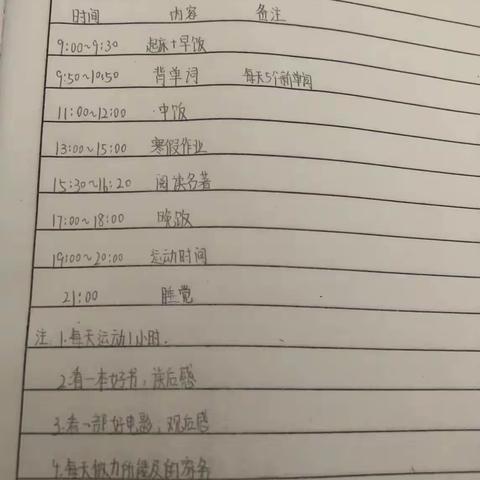 时间 内容 备注
9:00~9:30 起床+早饭
9:50~10:50 背单词 每天5个新单词
11:00~12:00 中饭
13:00~15:00 寒假作业
15:30~16:20 阅读名著
17:00~18:00 晚饭
19:00~20:00 运动时间
21:00 睡觉
注 1.每天运动1小时.
2.看一本好书,读后感
3.看一部好电影,观后感
4.每天做力所能及的家务